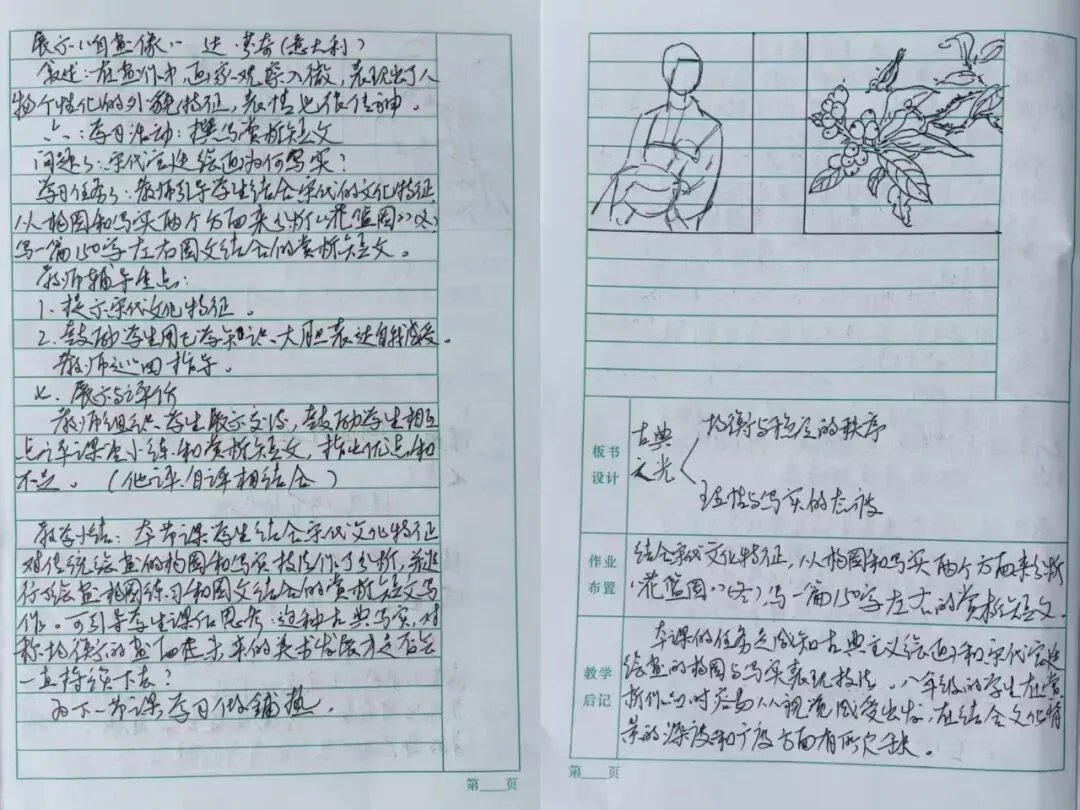 展示《自画像》 达·芬奇(意大利)
叙述:在画作中,画家观察入微,表现出了人
物个性化的外貌特征,表情也很传神。
六:学习活动:撰写赏析短文
问题3:宋代宫廷绘画为何写实?
学习任务3:教师引导学生结合宋代的文化特征
从构图和写实两个方面来分析《花篮图》(冬)
写一篇150字左右图文结合的赏析短文。
教师辅导重点:
1、提示宋代文化特征。
2、鼓励学生用已学知识、大胆表达自我感受。
教师巡回指导。
七、展示与评价
教师组织学生展示交流,鼓励学生相互
点评课堂小练和赏析短文,指出优点和
不足。(他评自评相结合)
教学小结:本节课学生结合宋代文化特征
对传统绘画的构图和写实技法作了分析,并进
行的绘画构图练习和图文结合的赏析短文写
作。可引导学生课后思考:这种古典写实,对
称均衡的画面在未来的美术发展中是否会
一直持续下去?
为下一节课学习做铺垫。
第 页
板书设计
古典之光
均衡与稳定的秩序
理性与写实的态度
作业布置
结合宋代文化特征,从构图和写实两个方面来分析
《花篮图》(冬),写一篇150字左右的赏析短文。
教学后记
本课的任务是感知古典主义绘画和宋代宫廷
绘画的构图与写实表现技法。八年级的学生在赏
析作品时容易从视觉感受出发,在结合文化情
景的深度和广度方面有所欠缺。
第 页